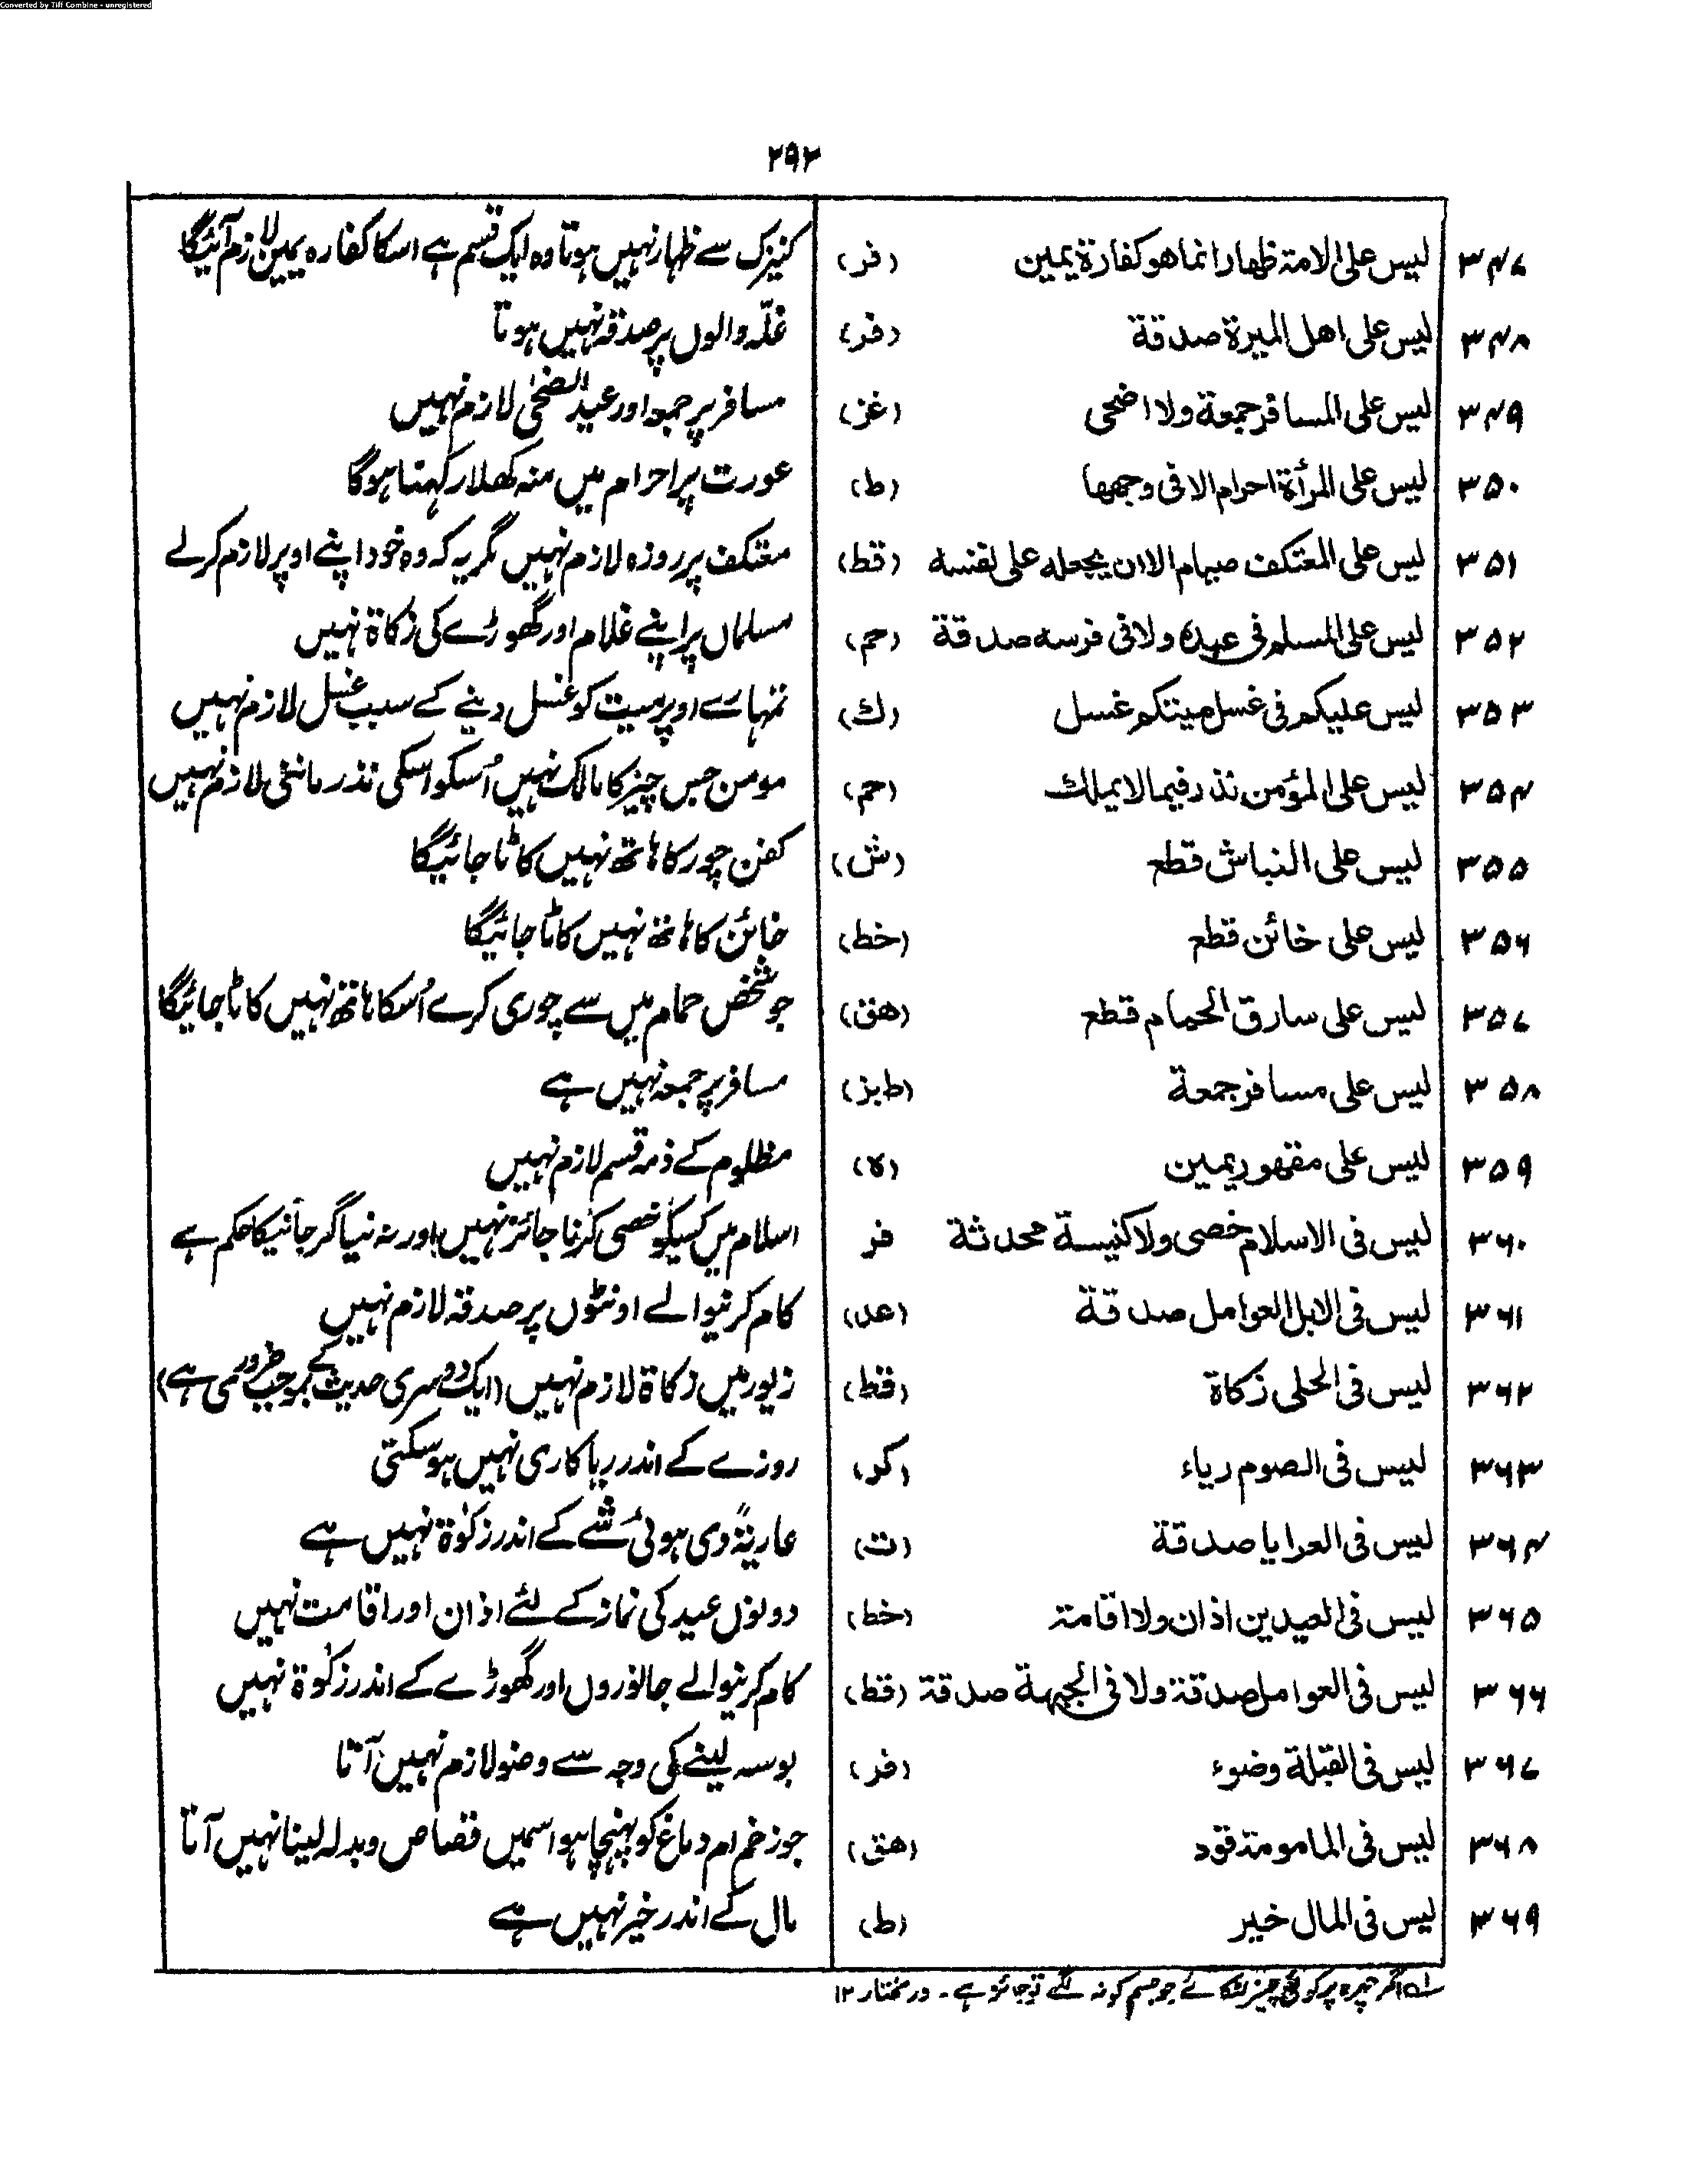 Converted by Tiff Combine - unregistered
۲۹۲
۳۴۷ لیس علی الامۃ ظھار انما ھو کفارۃ یمین (فر) کنیزک سے ظہار نہیں ہوتا وہ ایک قسم ہے اسکا کفارہ یمین لازم آئیگا
۳۴۸ لیس علی اھل المیرۃ صدقۃ (فر) غلّہ والوں پر صدقہ نہیں ہوتا
۳۴۹ لیس علی المسافر جمعۃ ولا اضحی (غز) مسافر پر جمعہ اور عید الضحیٰ لازم نہیں
۳۵۰ لیس علی المرأۃ احرام الا فی وجھھا (ط) عورت پر احرام میں منہ کھلا رکہنا ہوگا
۳۵۱ لیس علی المعتکف صیام الا ان یجعلہ علی نفسہ (قط) معتکف پر روزہ لازم نہیں مگر یہ کہ وہ خود اپنے اوپر لازم کرلے
۳۵۲ لیس علی المسلم فی عبدہ ولا فی فرسہ صدقۃ (حم) مسلماں پر اپنے غلام اور گھوڑے کی زکاۃ نہیں
۳۵۳ لیس علیکم فی غسل میتکم غسل (ك) تمہارے اوپر میت کو غسل دینے کے سبب غسل لازم نہیں
۳۵۴ لیس علی المؤمن نذر فیما لا یملك (حم) مومن جس چیز کا مالک نہیں اُسکو اسکی نذر ماننی لازم نہیں
۳۵۵ لیس علی النباش قطع (ش) کفن چور کا ہاتھ نہیں کاٹا جائیگا
۳۵۶ لیس علی خائن قطع (خط) خائن کا ہاتھ نہیں کاٹا جائیگا
۳۵۷ لیس علی سارق الحمام قطع (ھق) جو شخص حمام میں سے چوری کرے اُسکا ہاتھ نہیں کاٹا جائیگا
۳۵۸ لیس علی مسافر جمعۃ (طبز) مسافر پر جمعہ نہیں ہے
۳۵۹ لیس علی مقھور یمین (ہ) مظلوم کے ذمہ قسم لازم نہیں
۳۶۰ لیس فی الاسلام خصی ولا کنیسۃ محدثۃ فر اسلام میں کسیکو خصی کرنا جائز نہیں اور نہ نیا گرجا نیکا حکم ہے
۳۶۱ لیس فی الابل العوامل صدقۃ (عد) کام کرنیوالے اونٹوں پر صدقہ لازم نہیں
۳۶۲ لیس فی الحلی زکاۃ (قط) زیور میں زکاۃ لازم نہیں (ایک دوسری حدیث کے بموجب ضروری ہے)
۳۶۳ لیس فی الصوم ریاء (کر) روزے کے اندر ریا کاری نہیں ہوسکتی
۳۶۴ لیس فی العرایا صدقۃ (ت) عاریۃً دی ہوئی شے کے اندر زکوٰۃ نہیں ہے
۳۶۵ لیس فی العیدین اذان ولا اقامۃ (خط) دونوں عید کی نماز کے لئے اذان اور اقامت نہیں
۳۶۶ لیس فی العوامل صدقۃ ولا فی الجبھۃ صدقۃ (قط) کام کرنیوالے جانوروں اور گھوڑے کے اندر زکوٰۃ نہیں
۳۶۷ لیس فی القبلۃ وضوء (فر) بوسہ لینے کی وجہ سے وضو لازم نہیں آتا
۳۶۸ لیس فی المامومۃ قود (ھق) جو زخم ام دماغ کو پہنچا ہو اسمیں قصاص و بدلہ لینا نہیں آتا
۳۶۹ لیس فی المال خیر (ط) مال کے اندر خیر نہیں ہے
لہ اگر چہرہ پر کوئی چیز لٹکائے جو جسم کو نہ لگے تو جائز ہے ۔ در مختار ۱۲